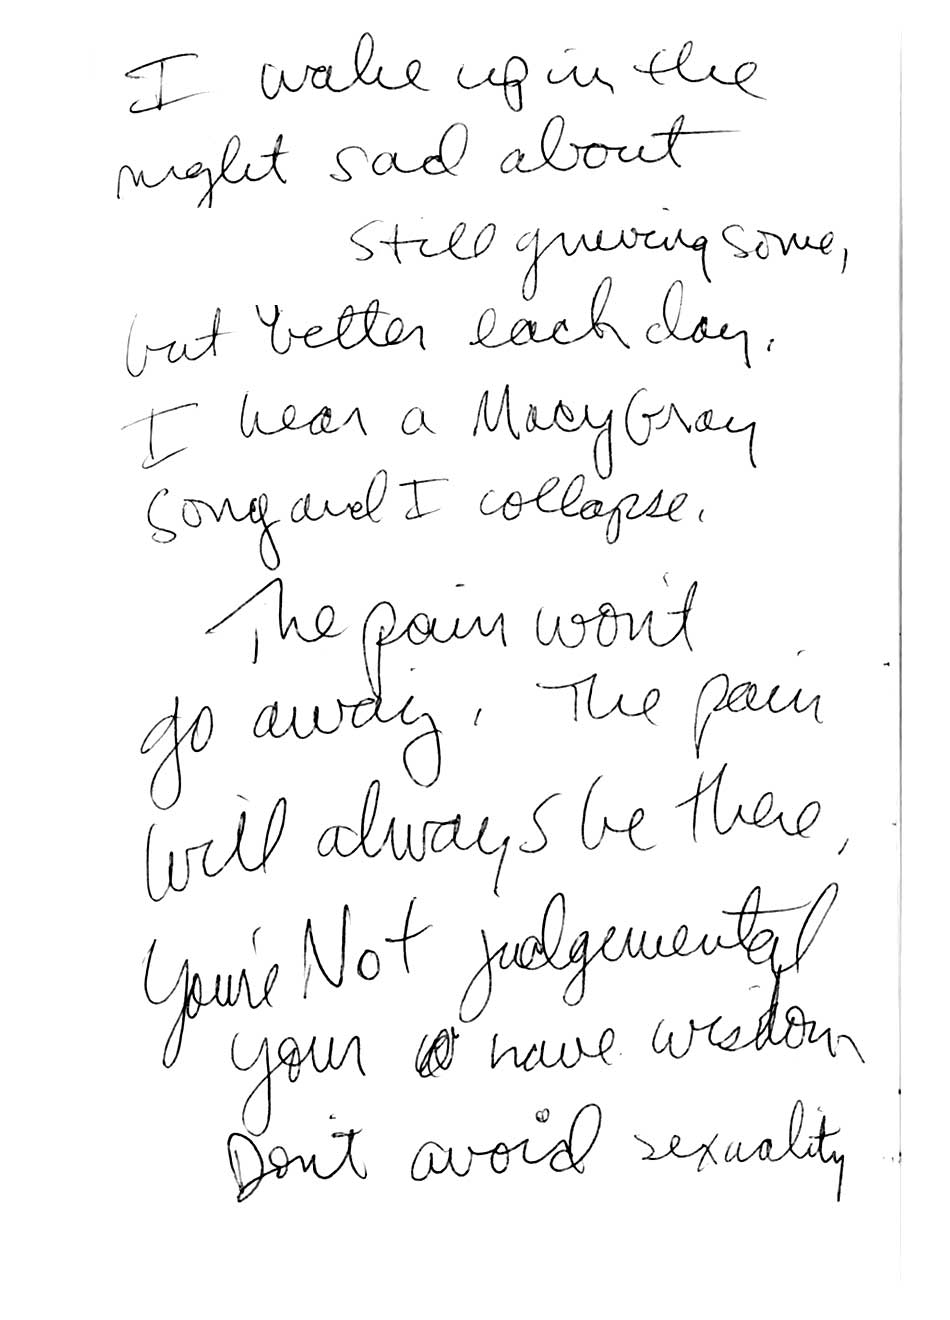 I wake up in the
night sad about
still grieving some,
but better each day.
I hear a Macy Gray
song and I collapse.
The pain won't
go away. The pain
will always be there,
You're Not judgemental
your have wisdom
Don't avoid sexuality